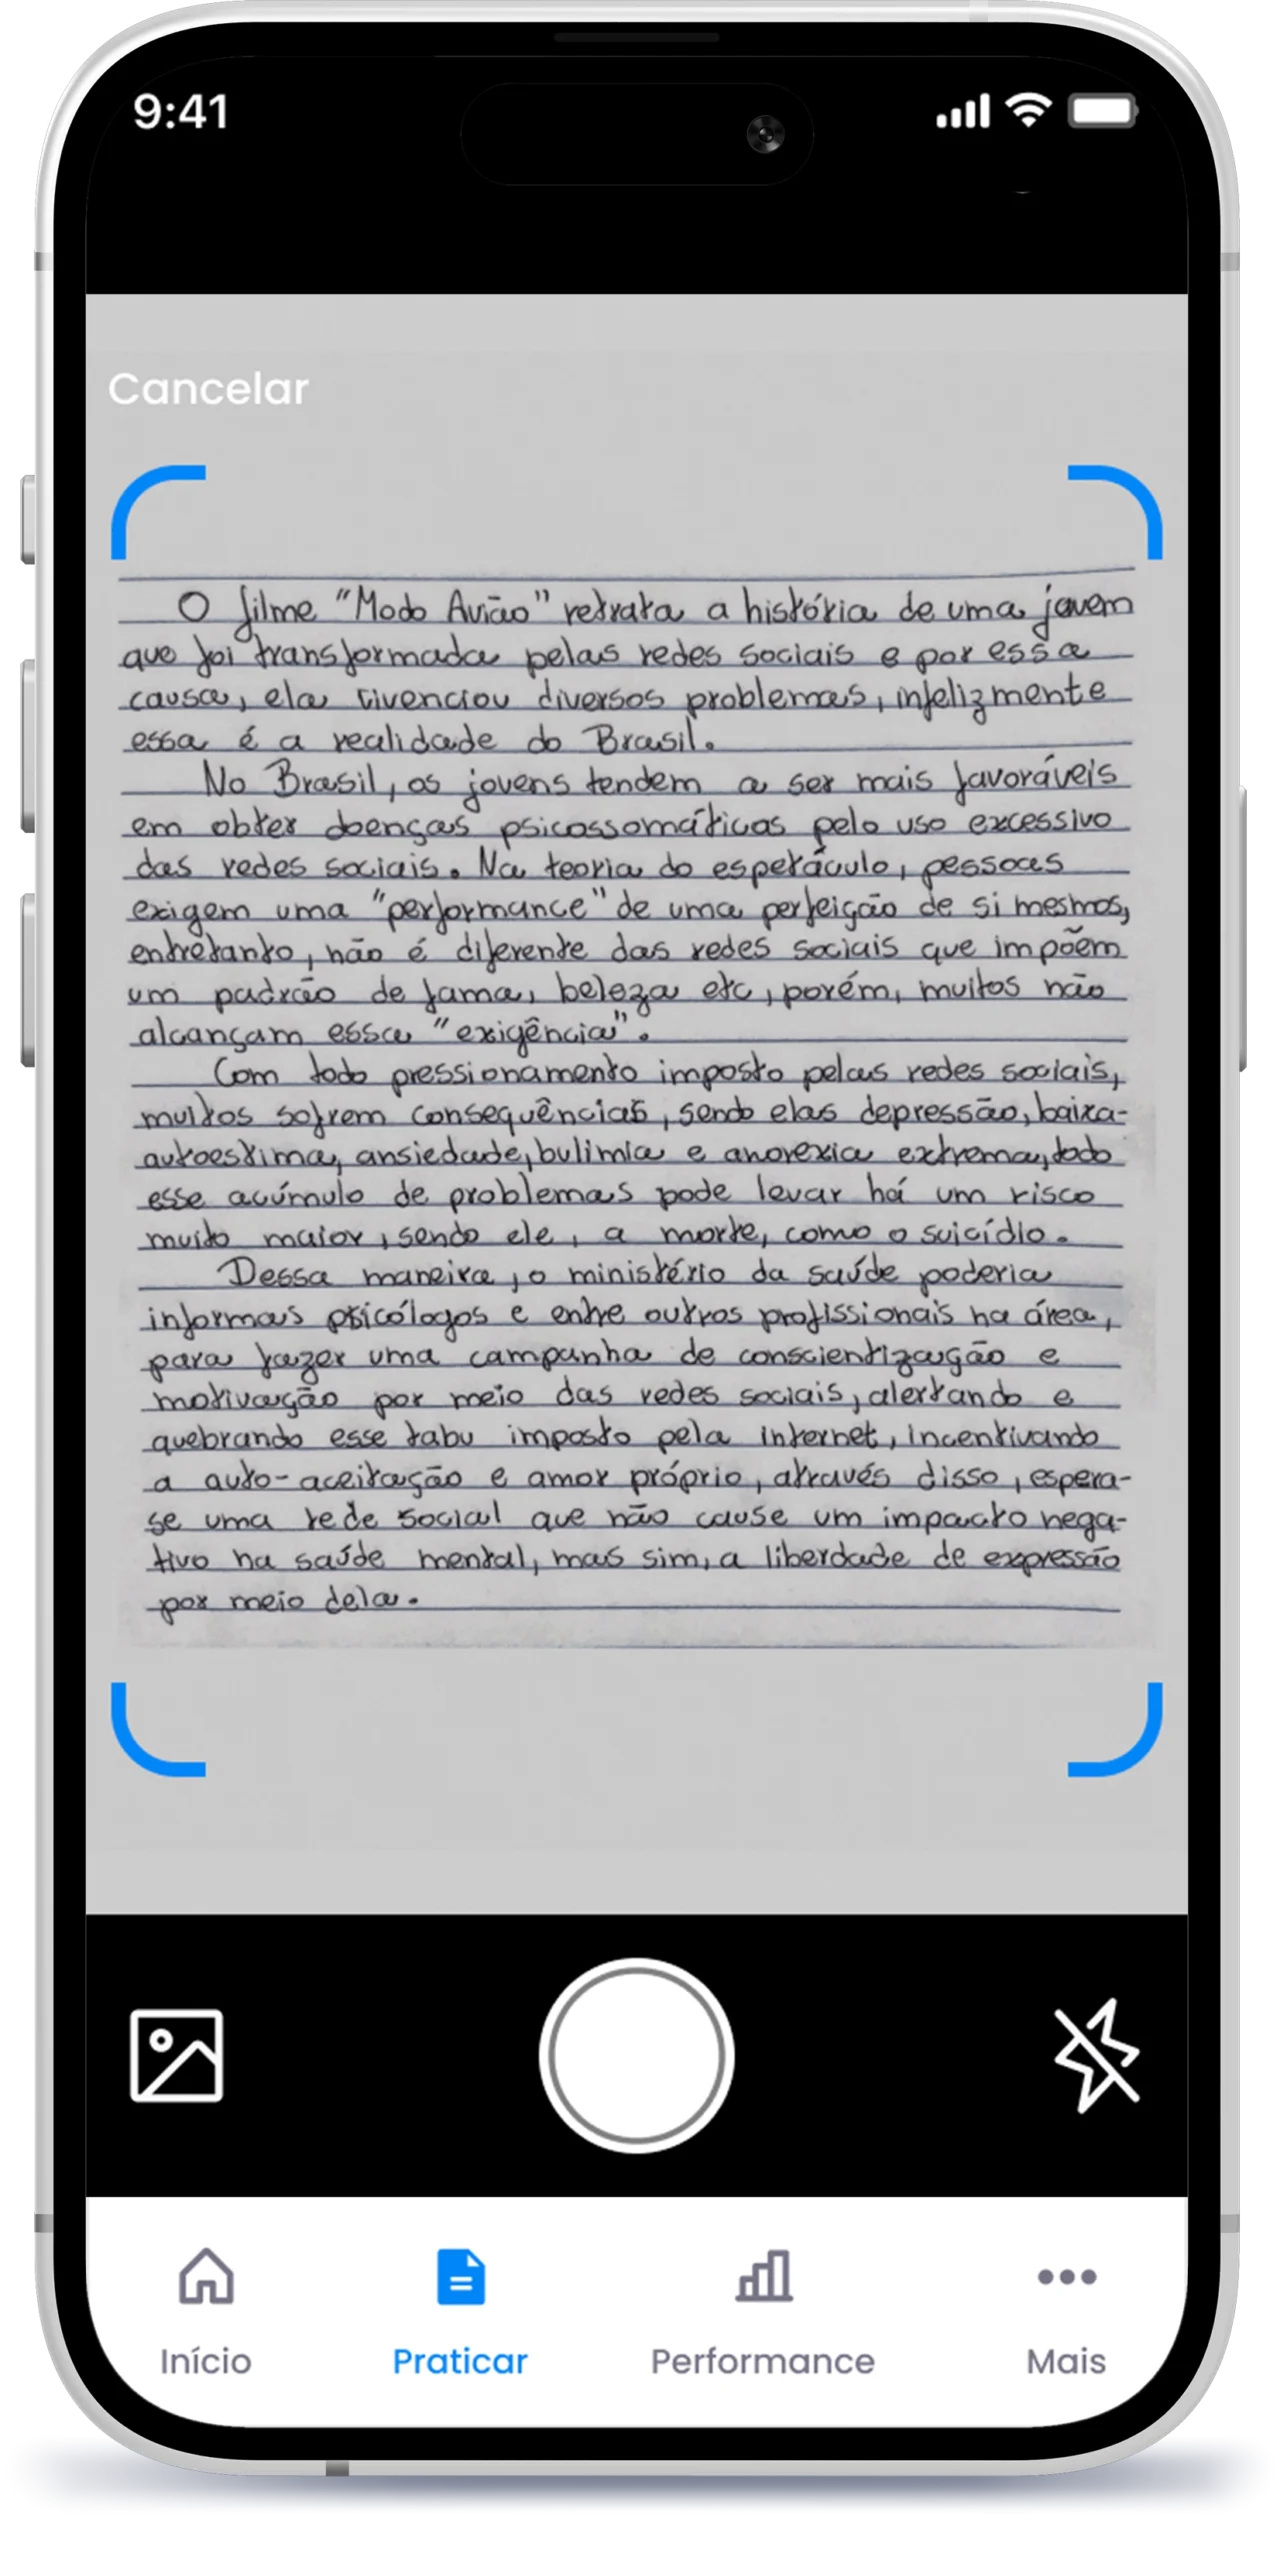 9:41
Cancelar
O filme "Modo Avião" retrata a história de uma jovem
que foi transformada pelas redes sociais e por essa
causa, ela vivenciou diversos problemas, infelizmente
essa é a realidade do Brasil.
No Brasil, os jovens tendem a ser mais favoráveis
em obter doenças psicossomáticas pelo uso excessivo
das redes sociais. Na teoria do espetáculo, pessoas
exigem uma "performance" de uma perfeição de si mesmos,
entretanto, não é diferente das redes sociais que impõem
um padrão de fama, beleza etc, porém, muitos não
alcançam essa "exigência".
Com todo pressionamento imposto pelas redes sociais,
muitos sofrem consequências, sendo elas depressão, baixa-
autoestima, ansiedade, bulimia e anorexia extrema, todo
esse acúmulo de problemas pode levar há um risco
muito maior, sendo ele, a morte, como o suicídio.
Dessa maneira, o ministério da saúde poderia
informas psicólogos e entre outros profissionais na área,
para fazer uma campanha de conscientização e
motivação por meio das redes sociais, alertando e
quebrando esse tabu imposto pela internet, incentivando
a auto-aceitação e amor próprio, através disso, espera-
se uma rede social que não cause um impacto nega-
tivo na saúde mental, mas sim, a liberdade de expressão
por meio dela.
Início
Praticar
Performance
Mais